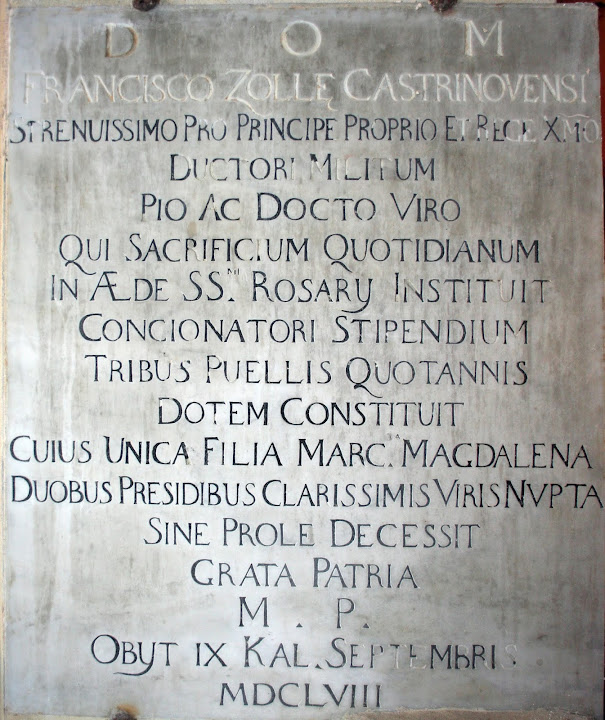 D O M
FRANCISCO ZOLLĘ CASTRINOVENSI
STRENUISSIMO PRO PRINCIPE PROPRIO ET REGE X.MO
DUCTORI MILITUM
PIO AC DOCTO VIRO
QUI SACRIFICIUM QUOTIDIANUM
IN ÆDE SS.MI ROSARY INSTITUIT
CONCIONATORI STIPENDIUM
TRIBUS PUELLIS QUOTANNIS
DOTEM CONSTITUIT
CUIUS UNICA FILIA MARC.NA MAGDALENA
DUOBUS PRESIDIBUS CLARISSIMIS VIRIS NVPTA
SINE PROLE DECESSIT
GRATA PATRIA
M . P.
OBYT IX KAL. SEPTEMbRIS
MDCLVIII